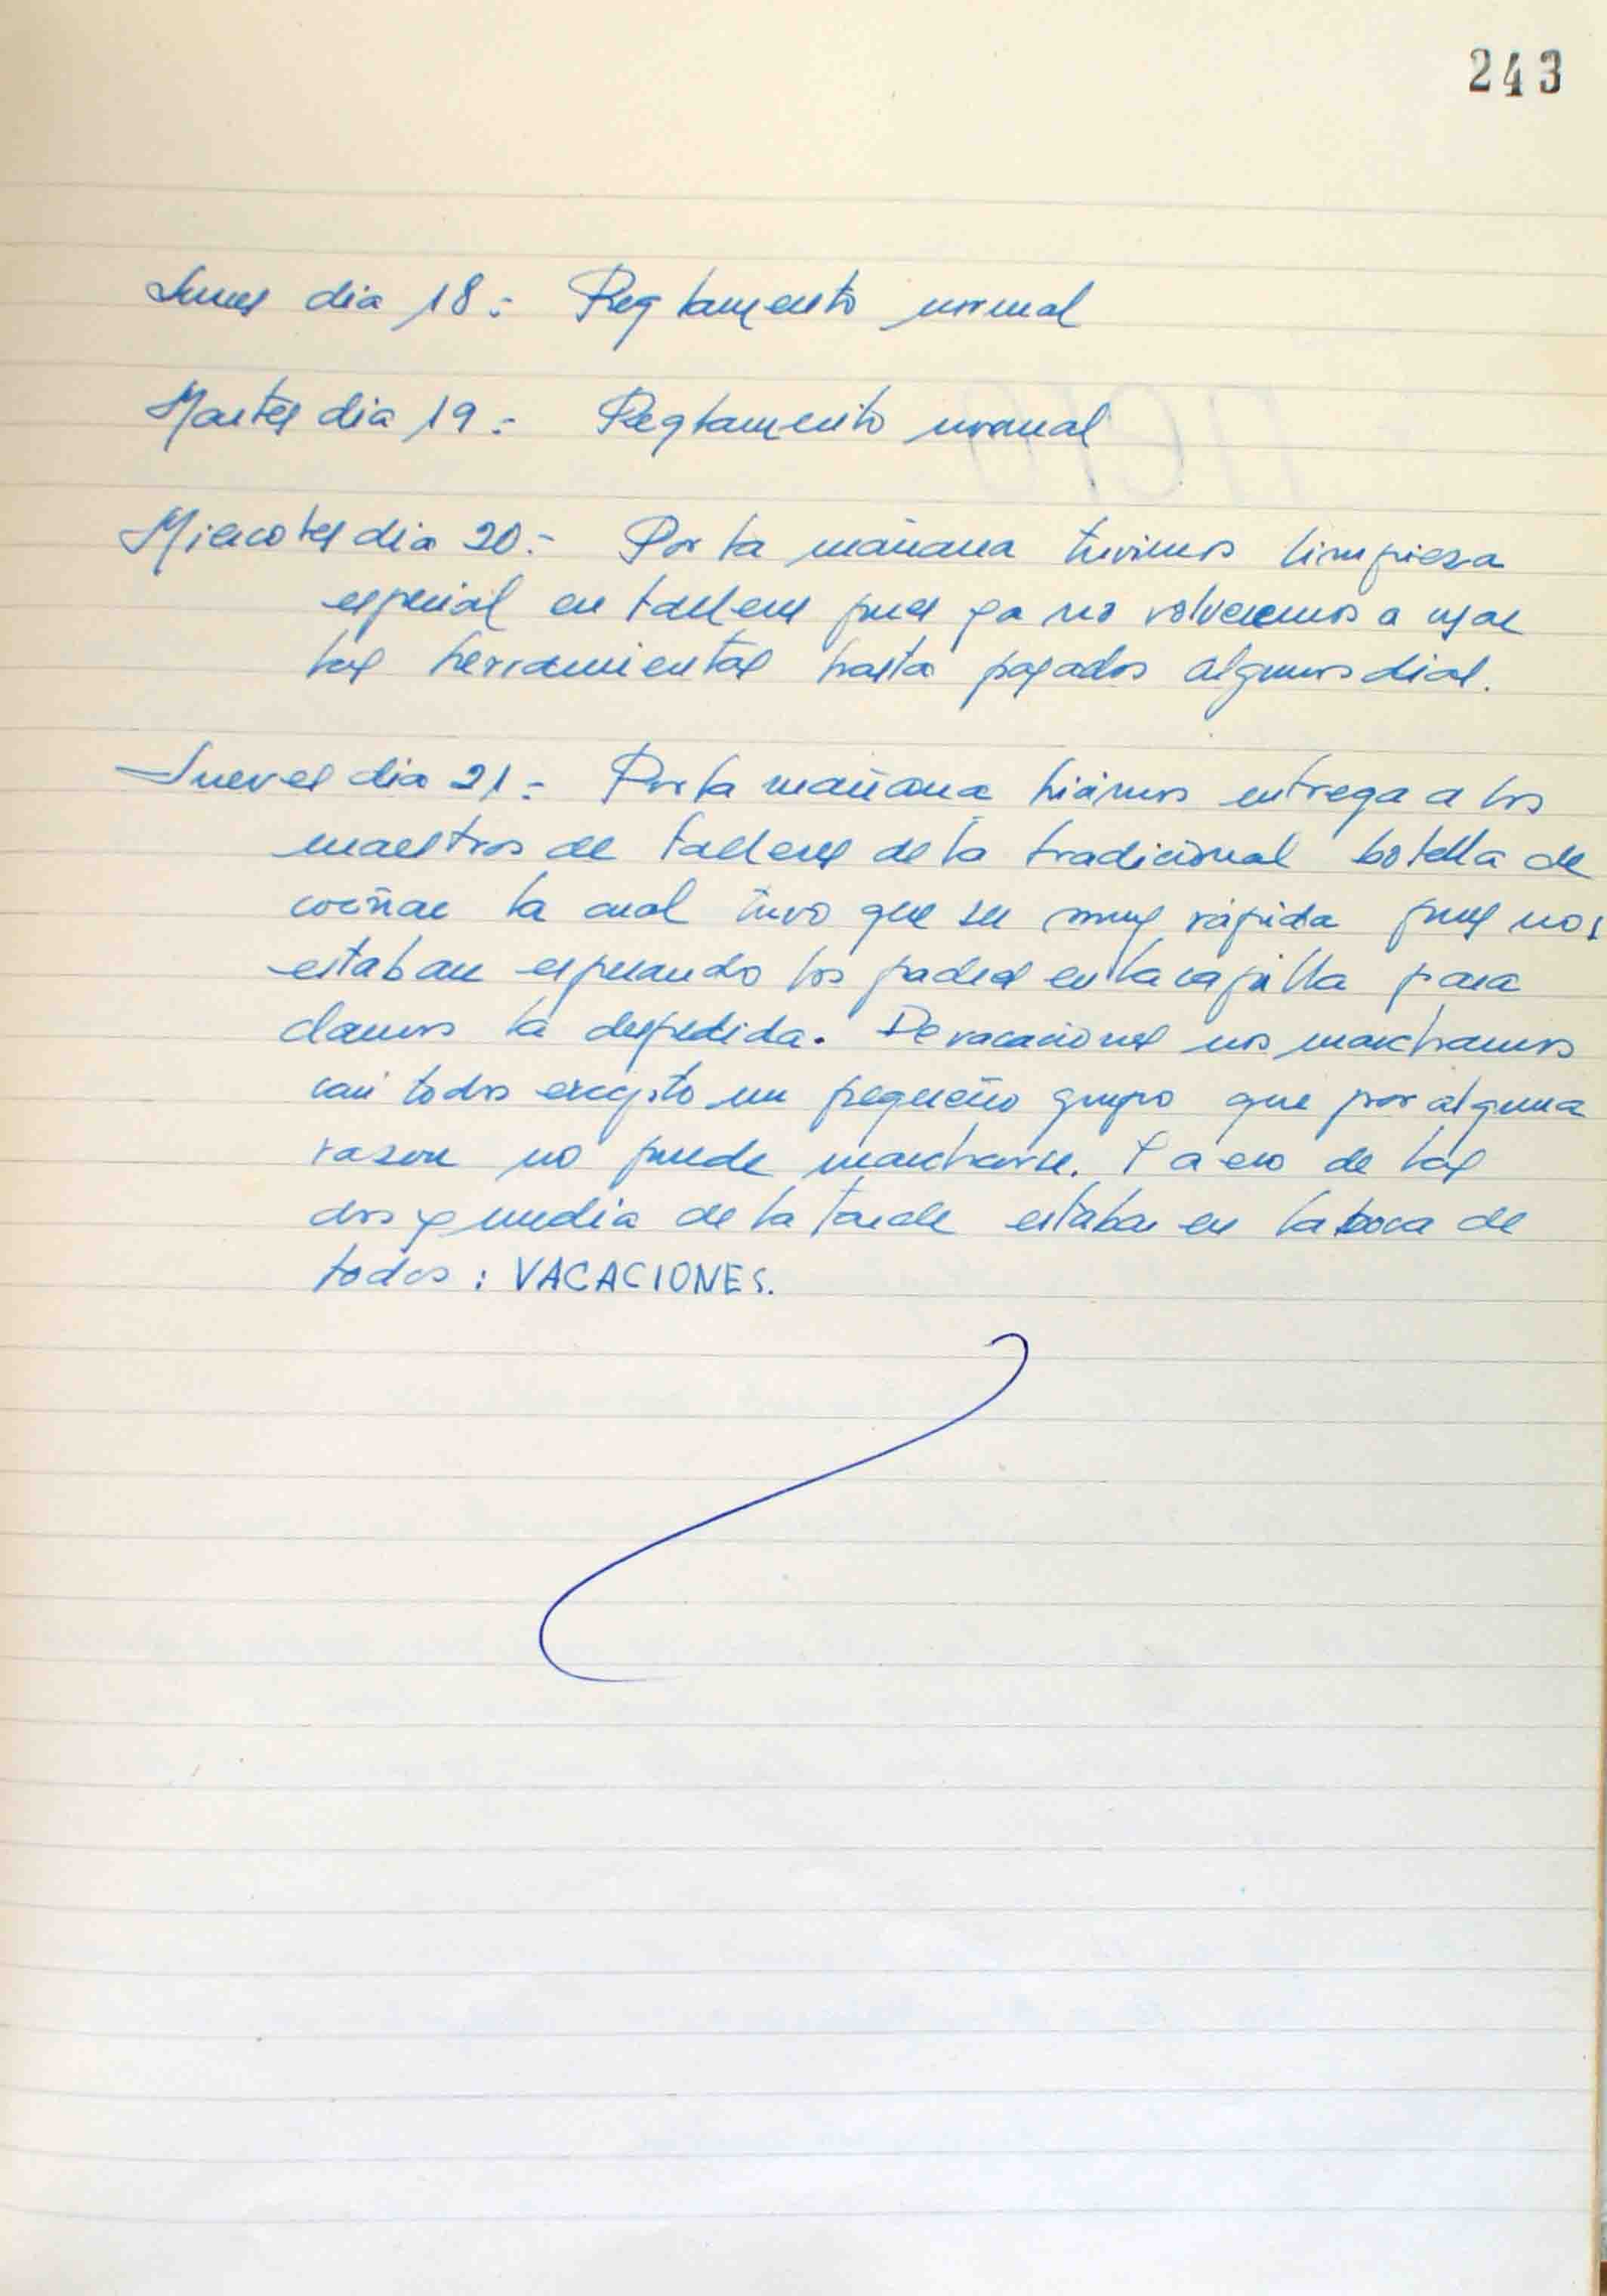 243
Lunes dia 18.- Reglamento normal
Martes dia 19.- Reglamento normal
Miercoles dia 20.- Por la mañana tuvimos limpieza
especial en talleres pues ya no volveremos a usar
las herramientas hasta pasados algunos dias.
Jueves dia 21.- Por la mañana hicimos entrega a los
maestros de talleres de la tradicional botella de
coñac la cual tuvo que ser muy rápida pues nos
estaban esperando los padres en la capilla para
darnos la despedida. De vacaciones nos marchamos
casi todos excepto un pequeño grupo que por alguna
razon no puede marcharse. Y a eso de las
dos y media de la tarde estaba en la boca de
todos : VACACIONES.